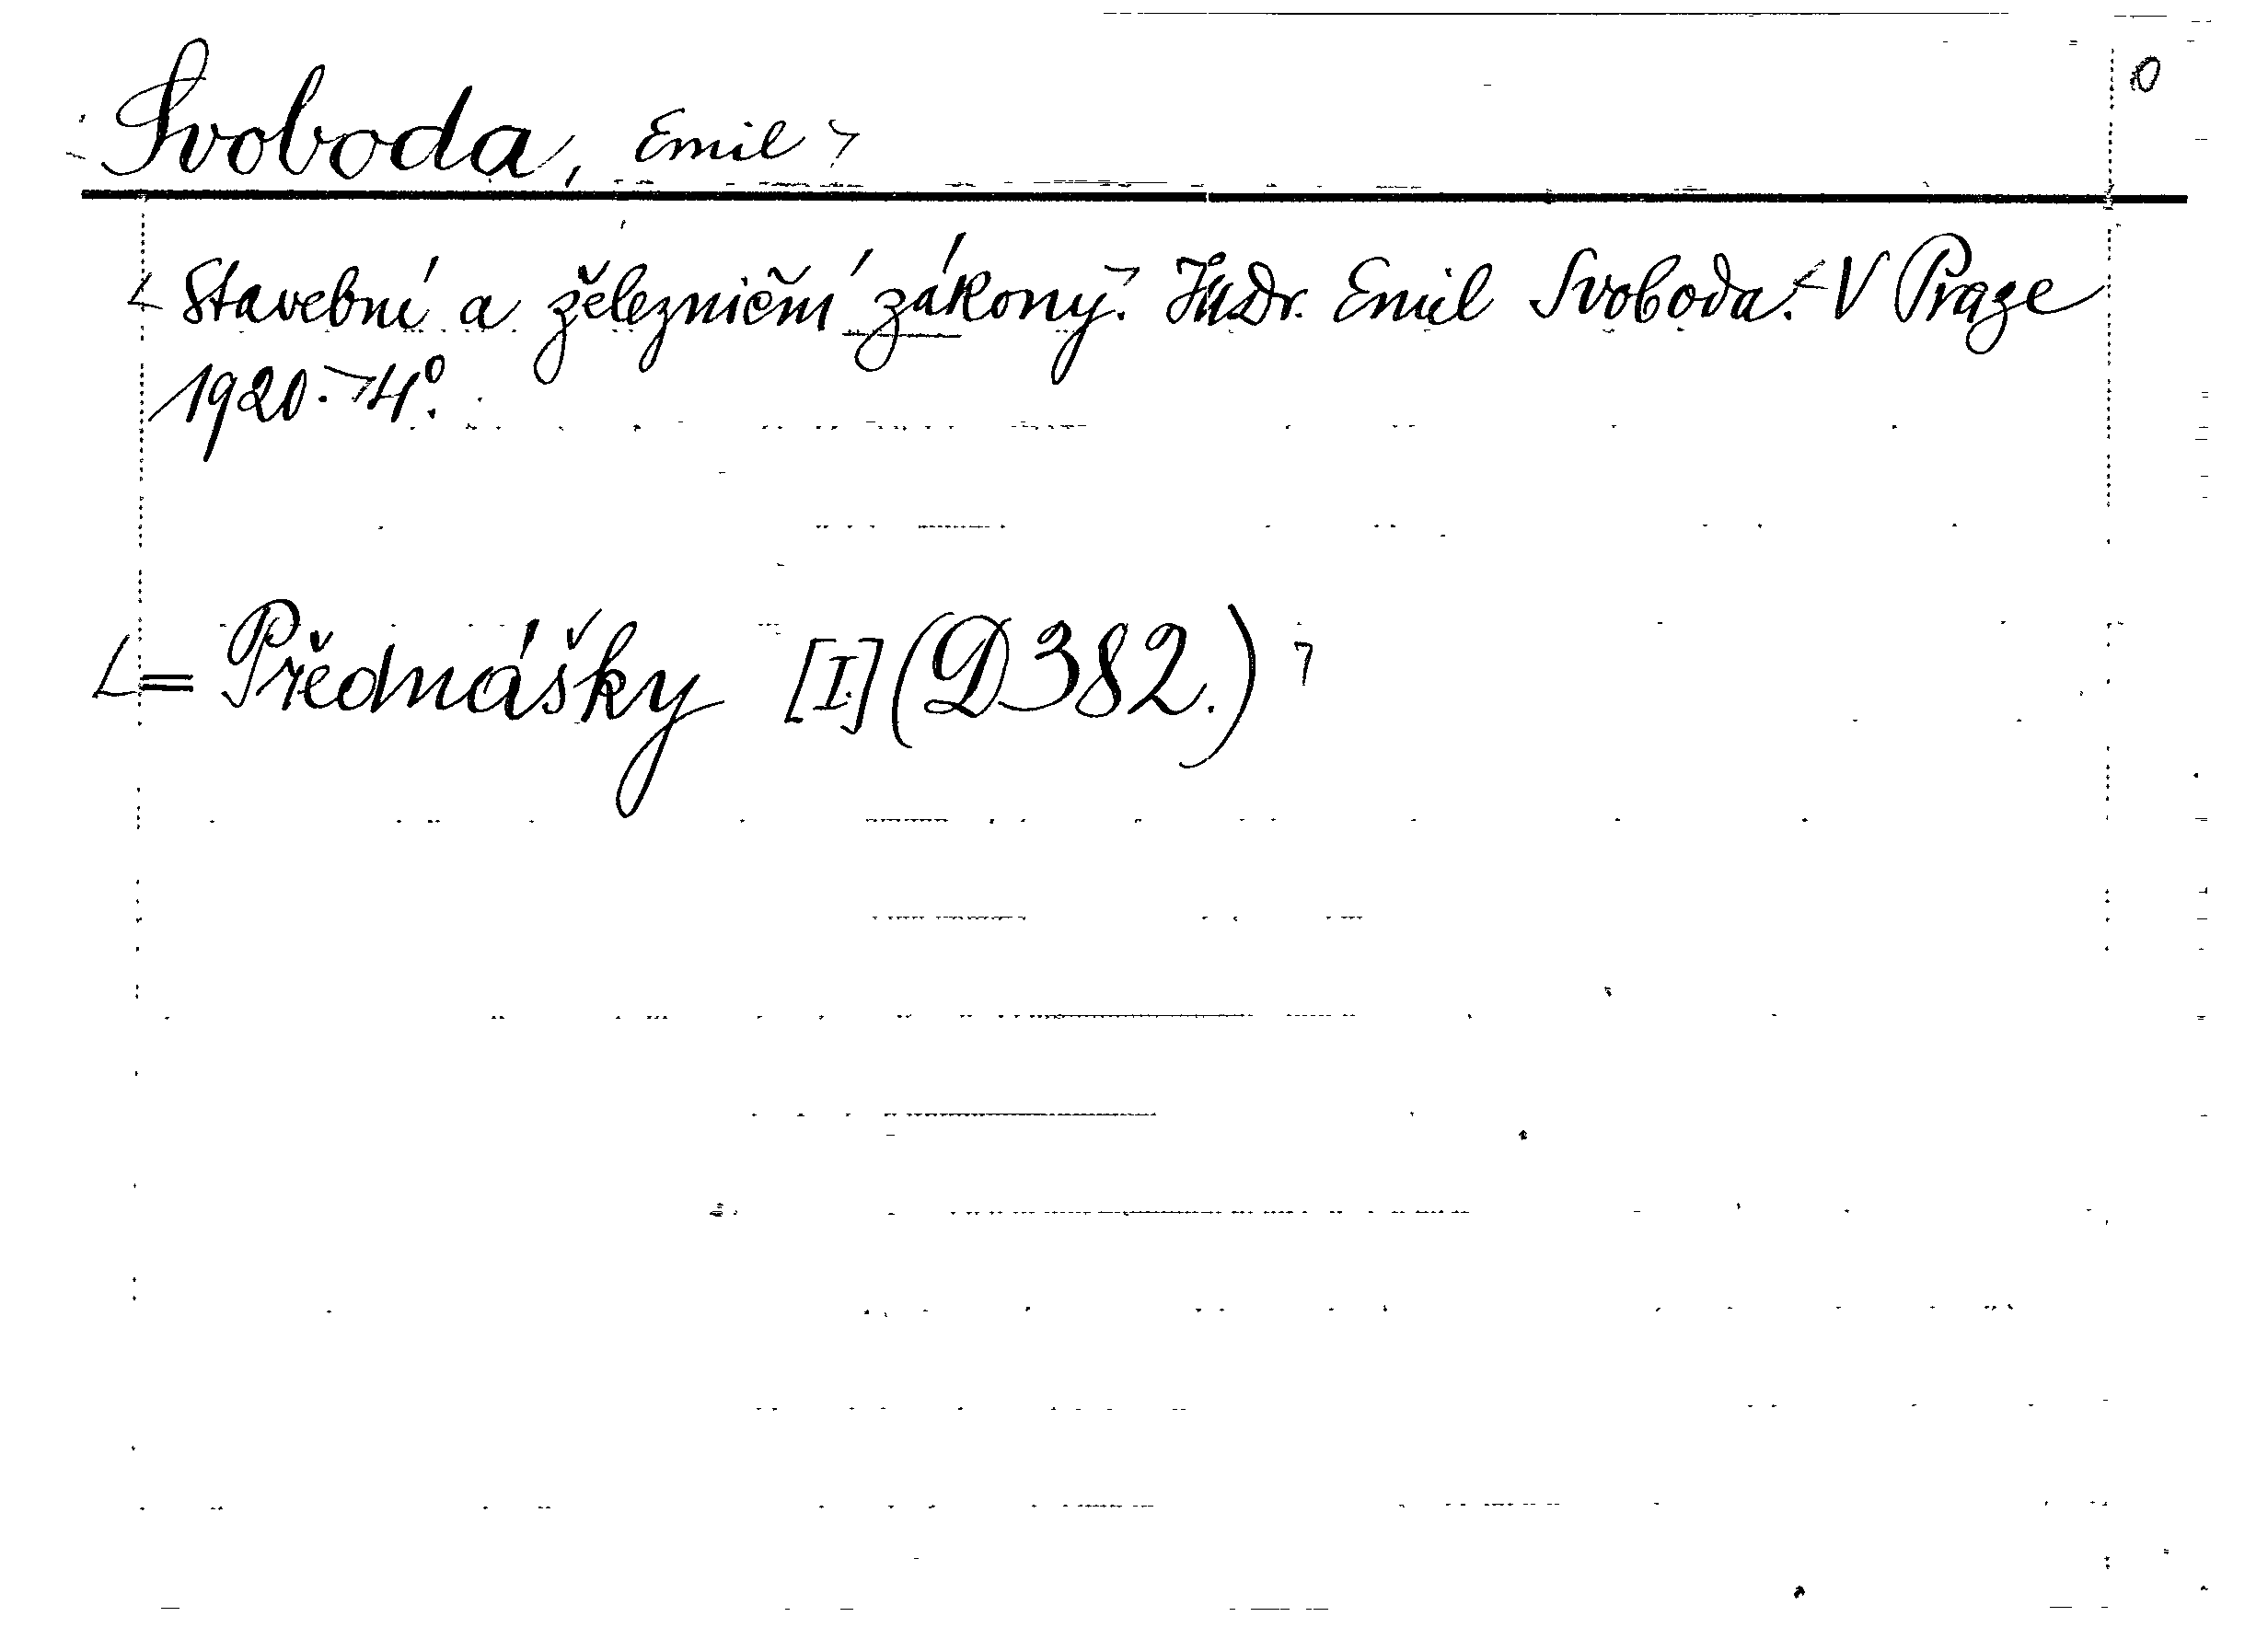 0
Svoboda, Emil
Stavební a železniční zákony. JUDr. Emil Svoboda. V Praze
1920. 4°.
= Přednášky [I.] (D382.)